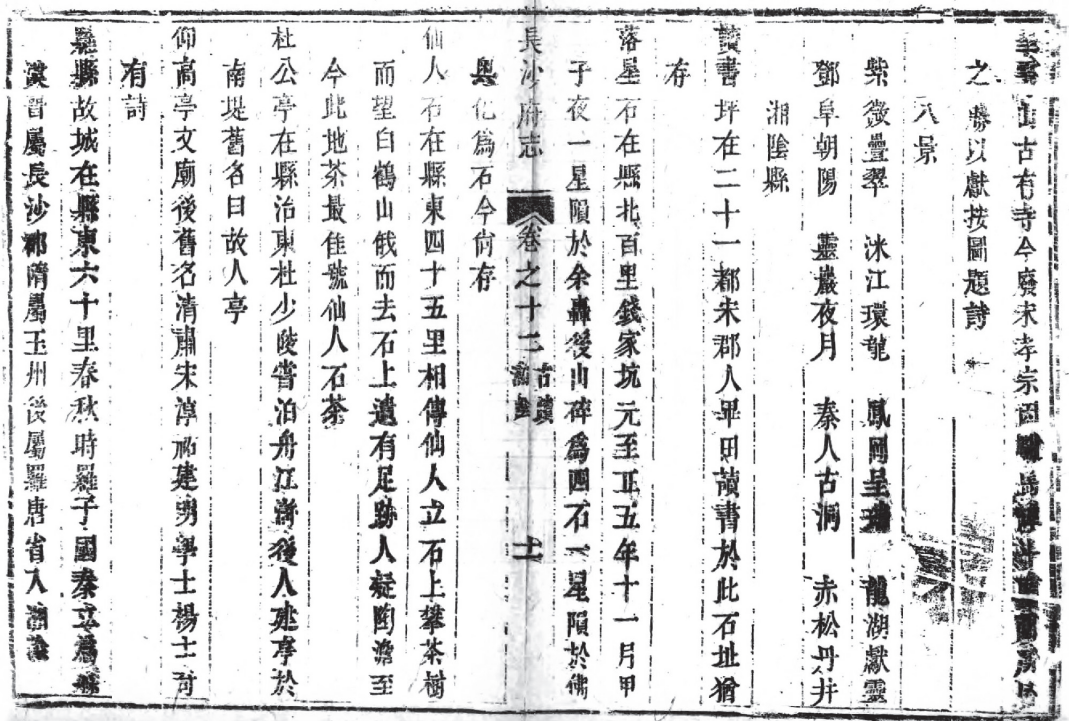 山古有寺今廢宋孝宗
之勝以獻按圖題詩
八景
紫微疊翠 冰江環龍 鳳岡呈瑞 龍湖獻靈
鄧阜朝陽 靈巖夜月 秦人古洞 赤松丹井
湘陰縣
讀書坪在二十一都宋郡人畢田讀書於此石址猶
存
落星石在縣北百里錢家坑元至正五年十一月甲
子夜一星隕於余轟後山碎為四石一星隕於佛
長沙府志 卷之十二 古蹟 十一
輿化為石今尙存
仙人石在縣東四十五里相傳仙人立石上攀茶樹
而望白鶴山俄而去石上遺有足跡人疑陶澹至
今此地茶最佳號仙人石茶
杜公亭在縣治東杜少陵嘗泊舟江滸後人建亭於
南堤舊名曰故人亭
仰高亭文廟後舊名清肅宋淳祐建勇學士楊士
有詩
羅縣故城在縣東六十里春秋時羅子國秦立為縣
漢晉屬長沙郡隋屬玉州後屬羅唐省入湘陰